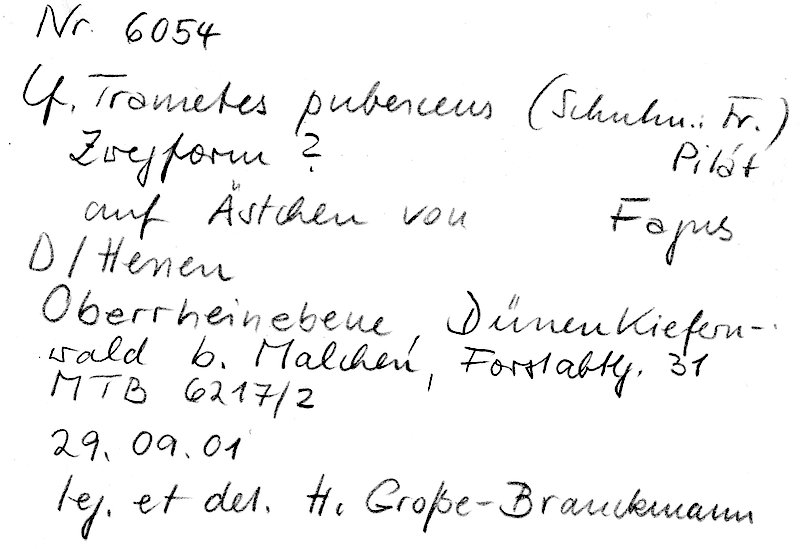 Nr. 6054
Cf. Trametes pubescens (Schuhm.: Fr.)
Zwergform ? Pilát
auf Ästchen von Fagus
D/Hessen
Oberrheinebene, Dünenkiefern-
wald b. Malchen, Forstabtlg. 31
MTB 6217/2
29.09.01
leg. et det. H. Große-Brauckmann